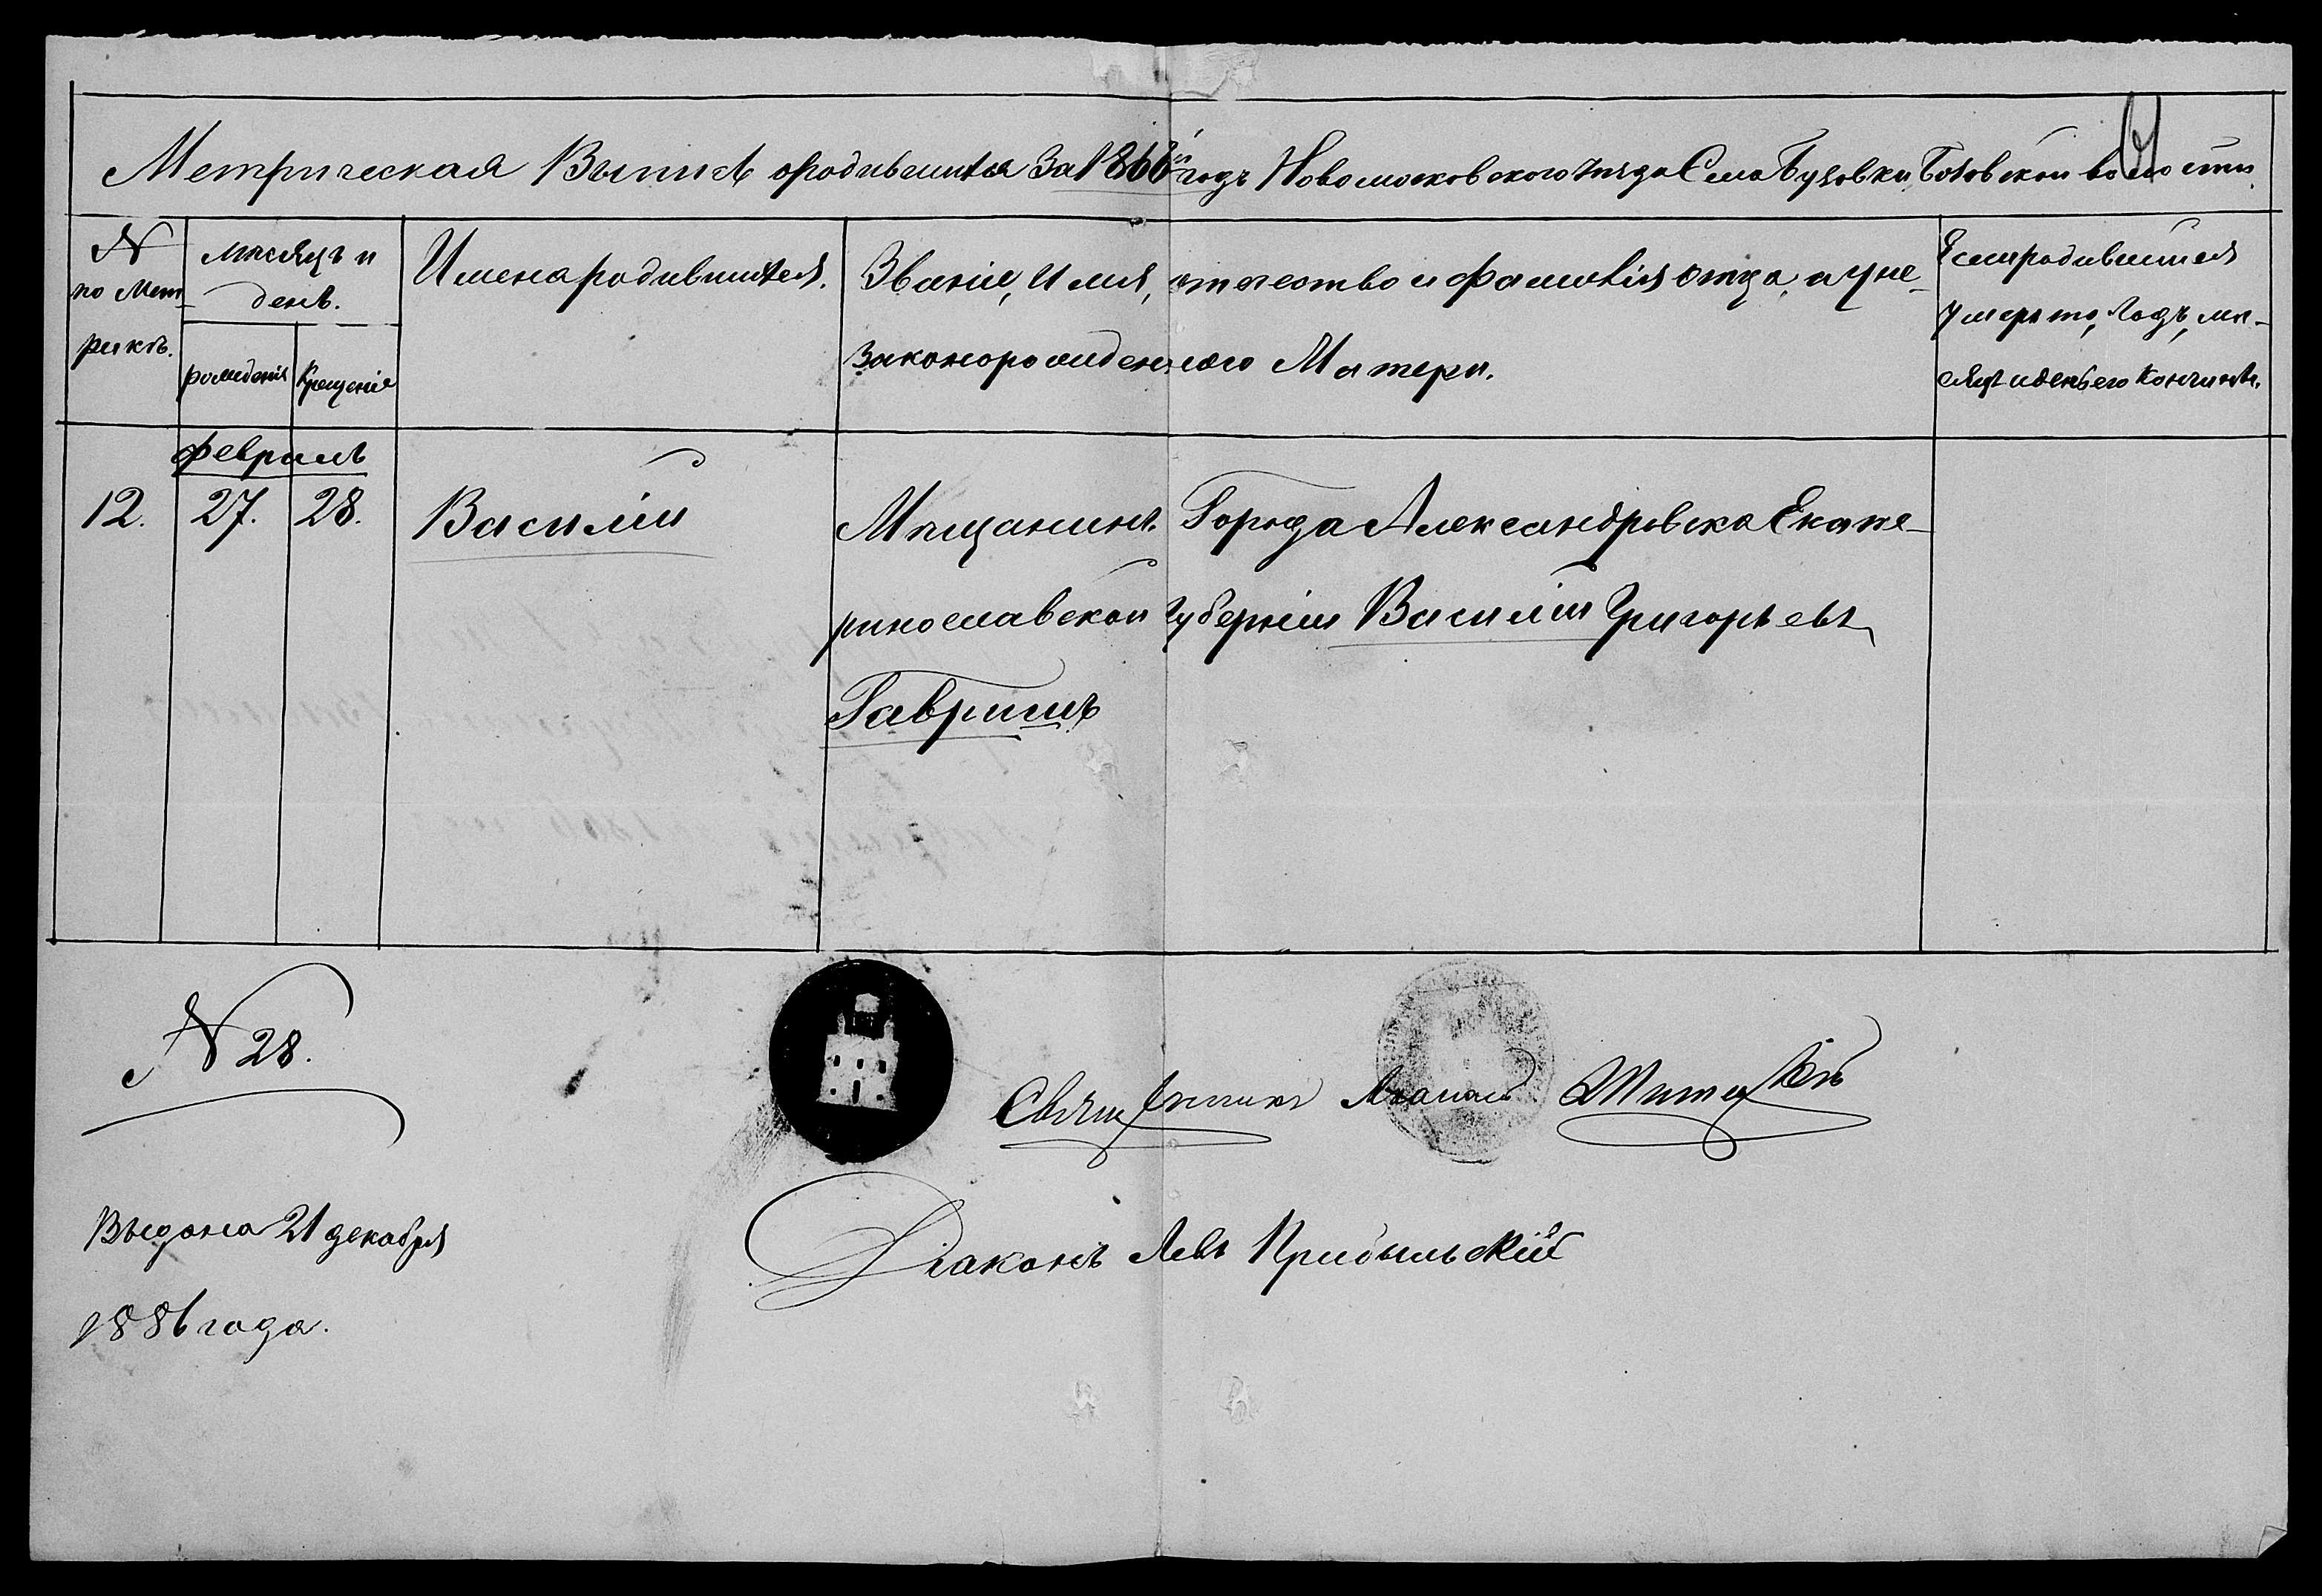 Метрическая Выпись о родившихся за 1866й годъ Новомосковского уѣзда Села Бузовки волости
N по Метрикѣ.
мѣсяцъ и день.
рожденія
Крещенія
Имена родившихся.
Званіе, Имя, отечество и фамилія отца, а у не-
законорожденнаго Матери.
Если родившійся
умеръ то, годъ, мѣ-
сяцъ и день его кончины.
февраль
12.
27.
28.
Василій
Мѣщанинъ Города Александровска Екате-
ринославской губерніи Василій Григорьевъ
Гавришъ
N 28.
Священникъ
Діаконъ Левъ Прибыльскій
Выдана 21 декабря
1886 года.